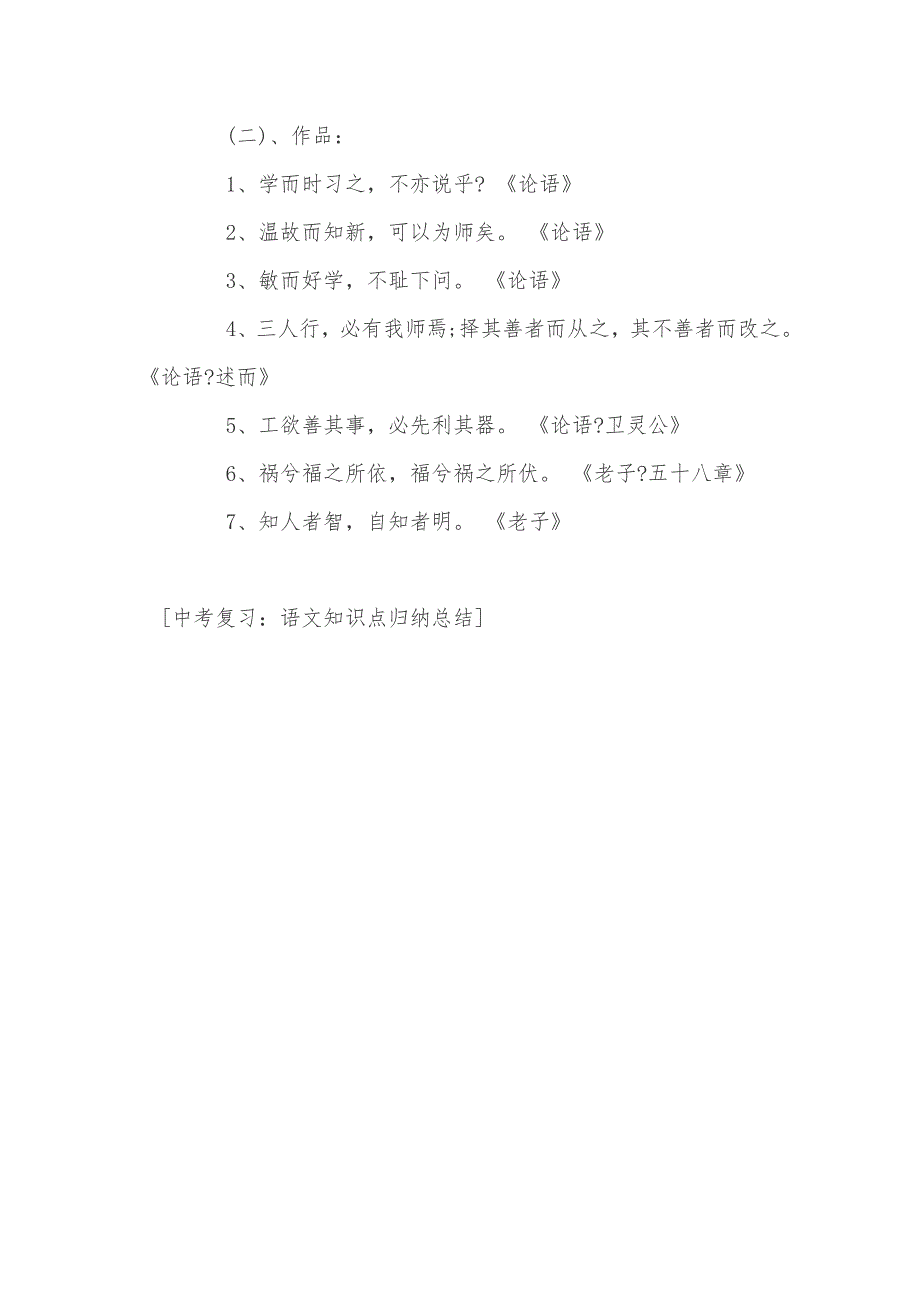 (二)、作品:
1、学而时习之，不亦说乎? 《论语》
2、温故而知新，可以为师矣。 《论语》
3、敏而好学，不耻下问。 《论语》
4、三人行，必有我师焉;择其善者而从之，其不善者而改之。
《论语?述而》
5、工欲善其事，必先利其器。 《论语?卫灵公》
6、祸兮福之所依，福兮祸之所伏。 《老子?五十八章》
7、知人者智，自知者明。 《老子》
[中考复习: 语文知识点归纳总结]